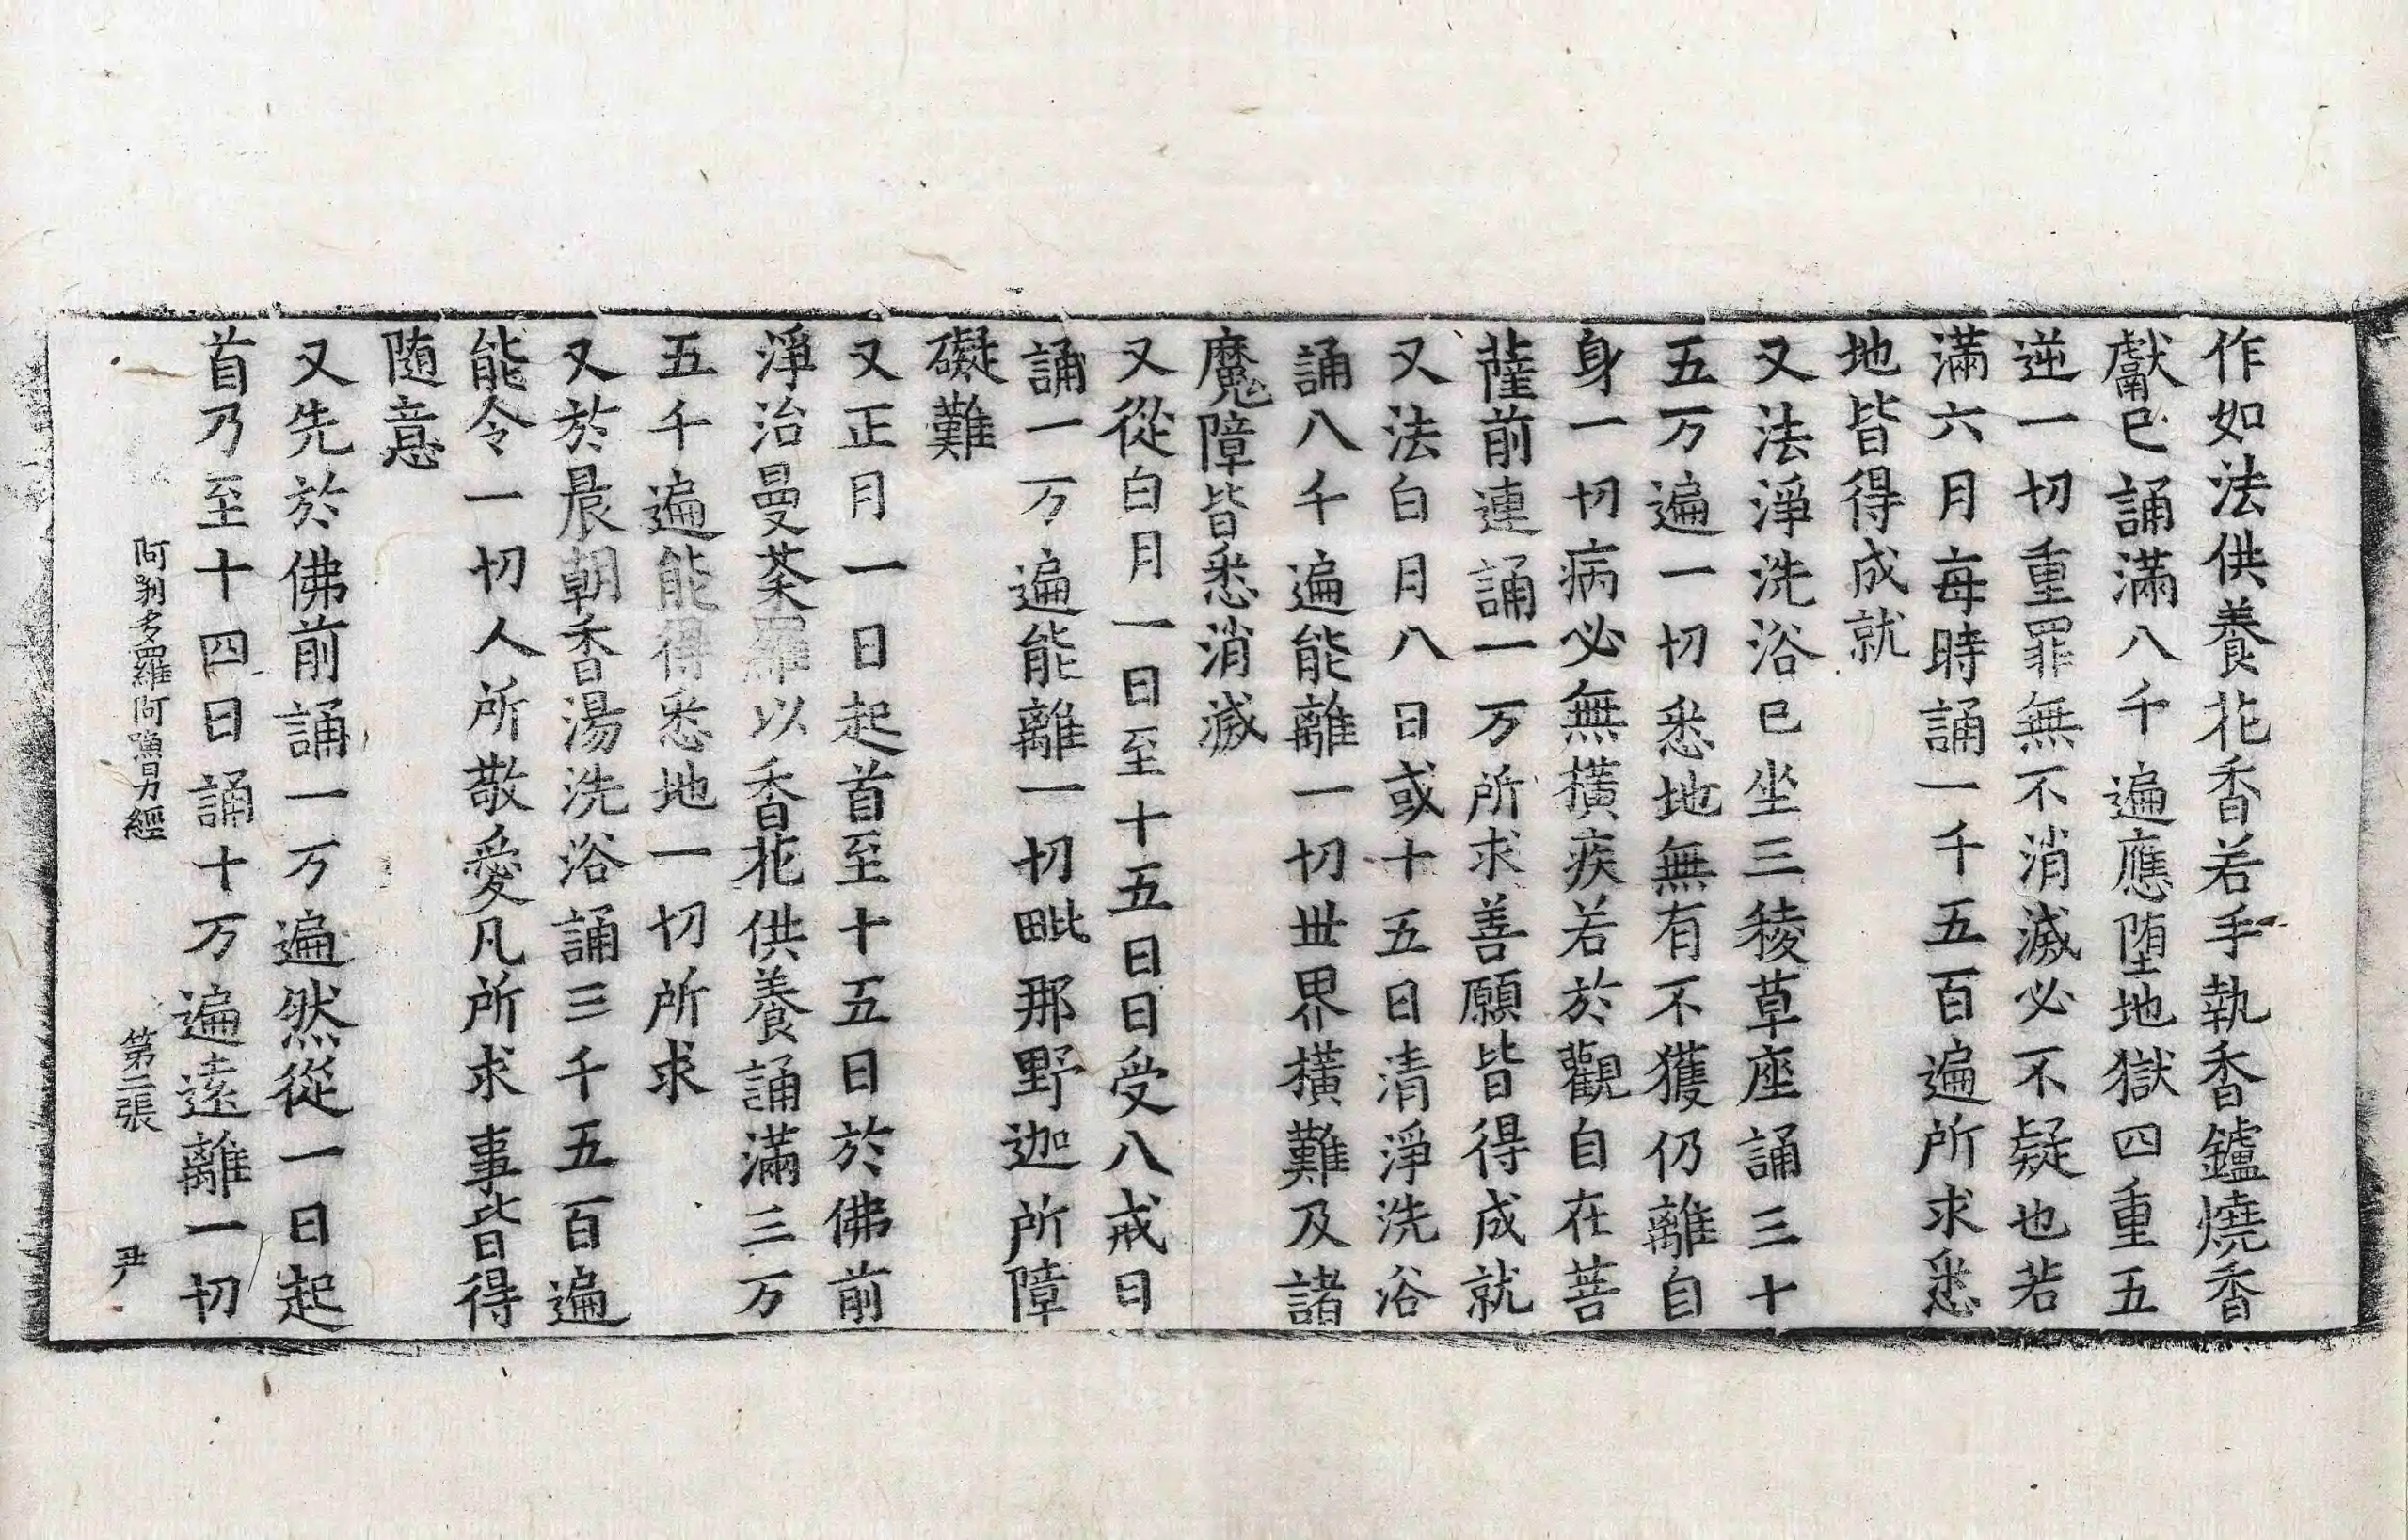 作如法供養花香若手執香鑪燒香
獻已誦滿八千遍應堕地獄四重五
逆一切重罪無不消滅必不疑也若
滿六月每時誦一千五百遍所求悉
地皆得成就
又法淨洗浴已坐三稜草座誦三十
五万遍一切悉地無有不獲仍離自
身一切病必無橫疾若於觀自在菩
薩前連誦一万所求善願皆得成就
又法白月八日或十五日清淨洗浴
誦八千遍能離一切世界橫難及諸
魔障皆悉消滅
又從白月一日至十五日日受八戒日
誦一万遍能離一切毗那野迦所障
礙難
又正月一日起首至十五日於佛前
淨治曼荼羅以香花供養誦滿三万
五千遍能得悉地一切所求
又於晨朝香湯洗浴誦三千五百遍
能令一切人所敬愛凡所求事皆得
随意
又先於佛前誦一万遍然從一日起
首乃至十四日誦十万遍遠離一切
阿唎多羅阿嚕力經 第二張 尹